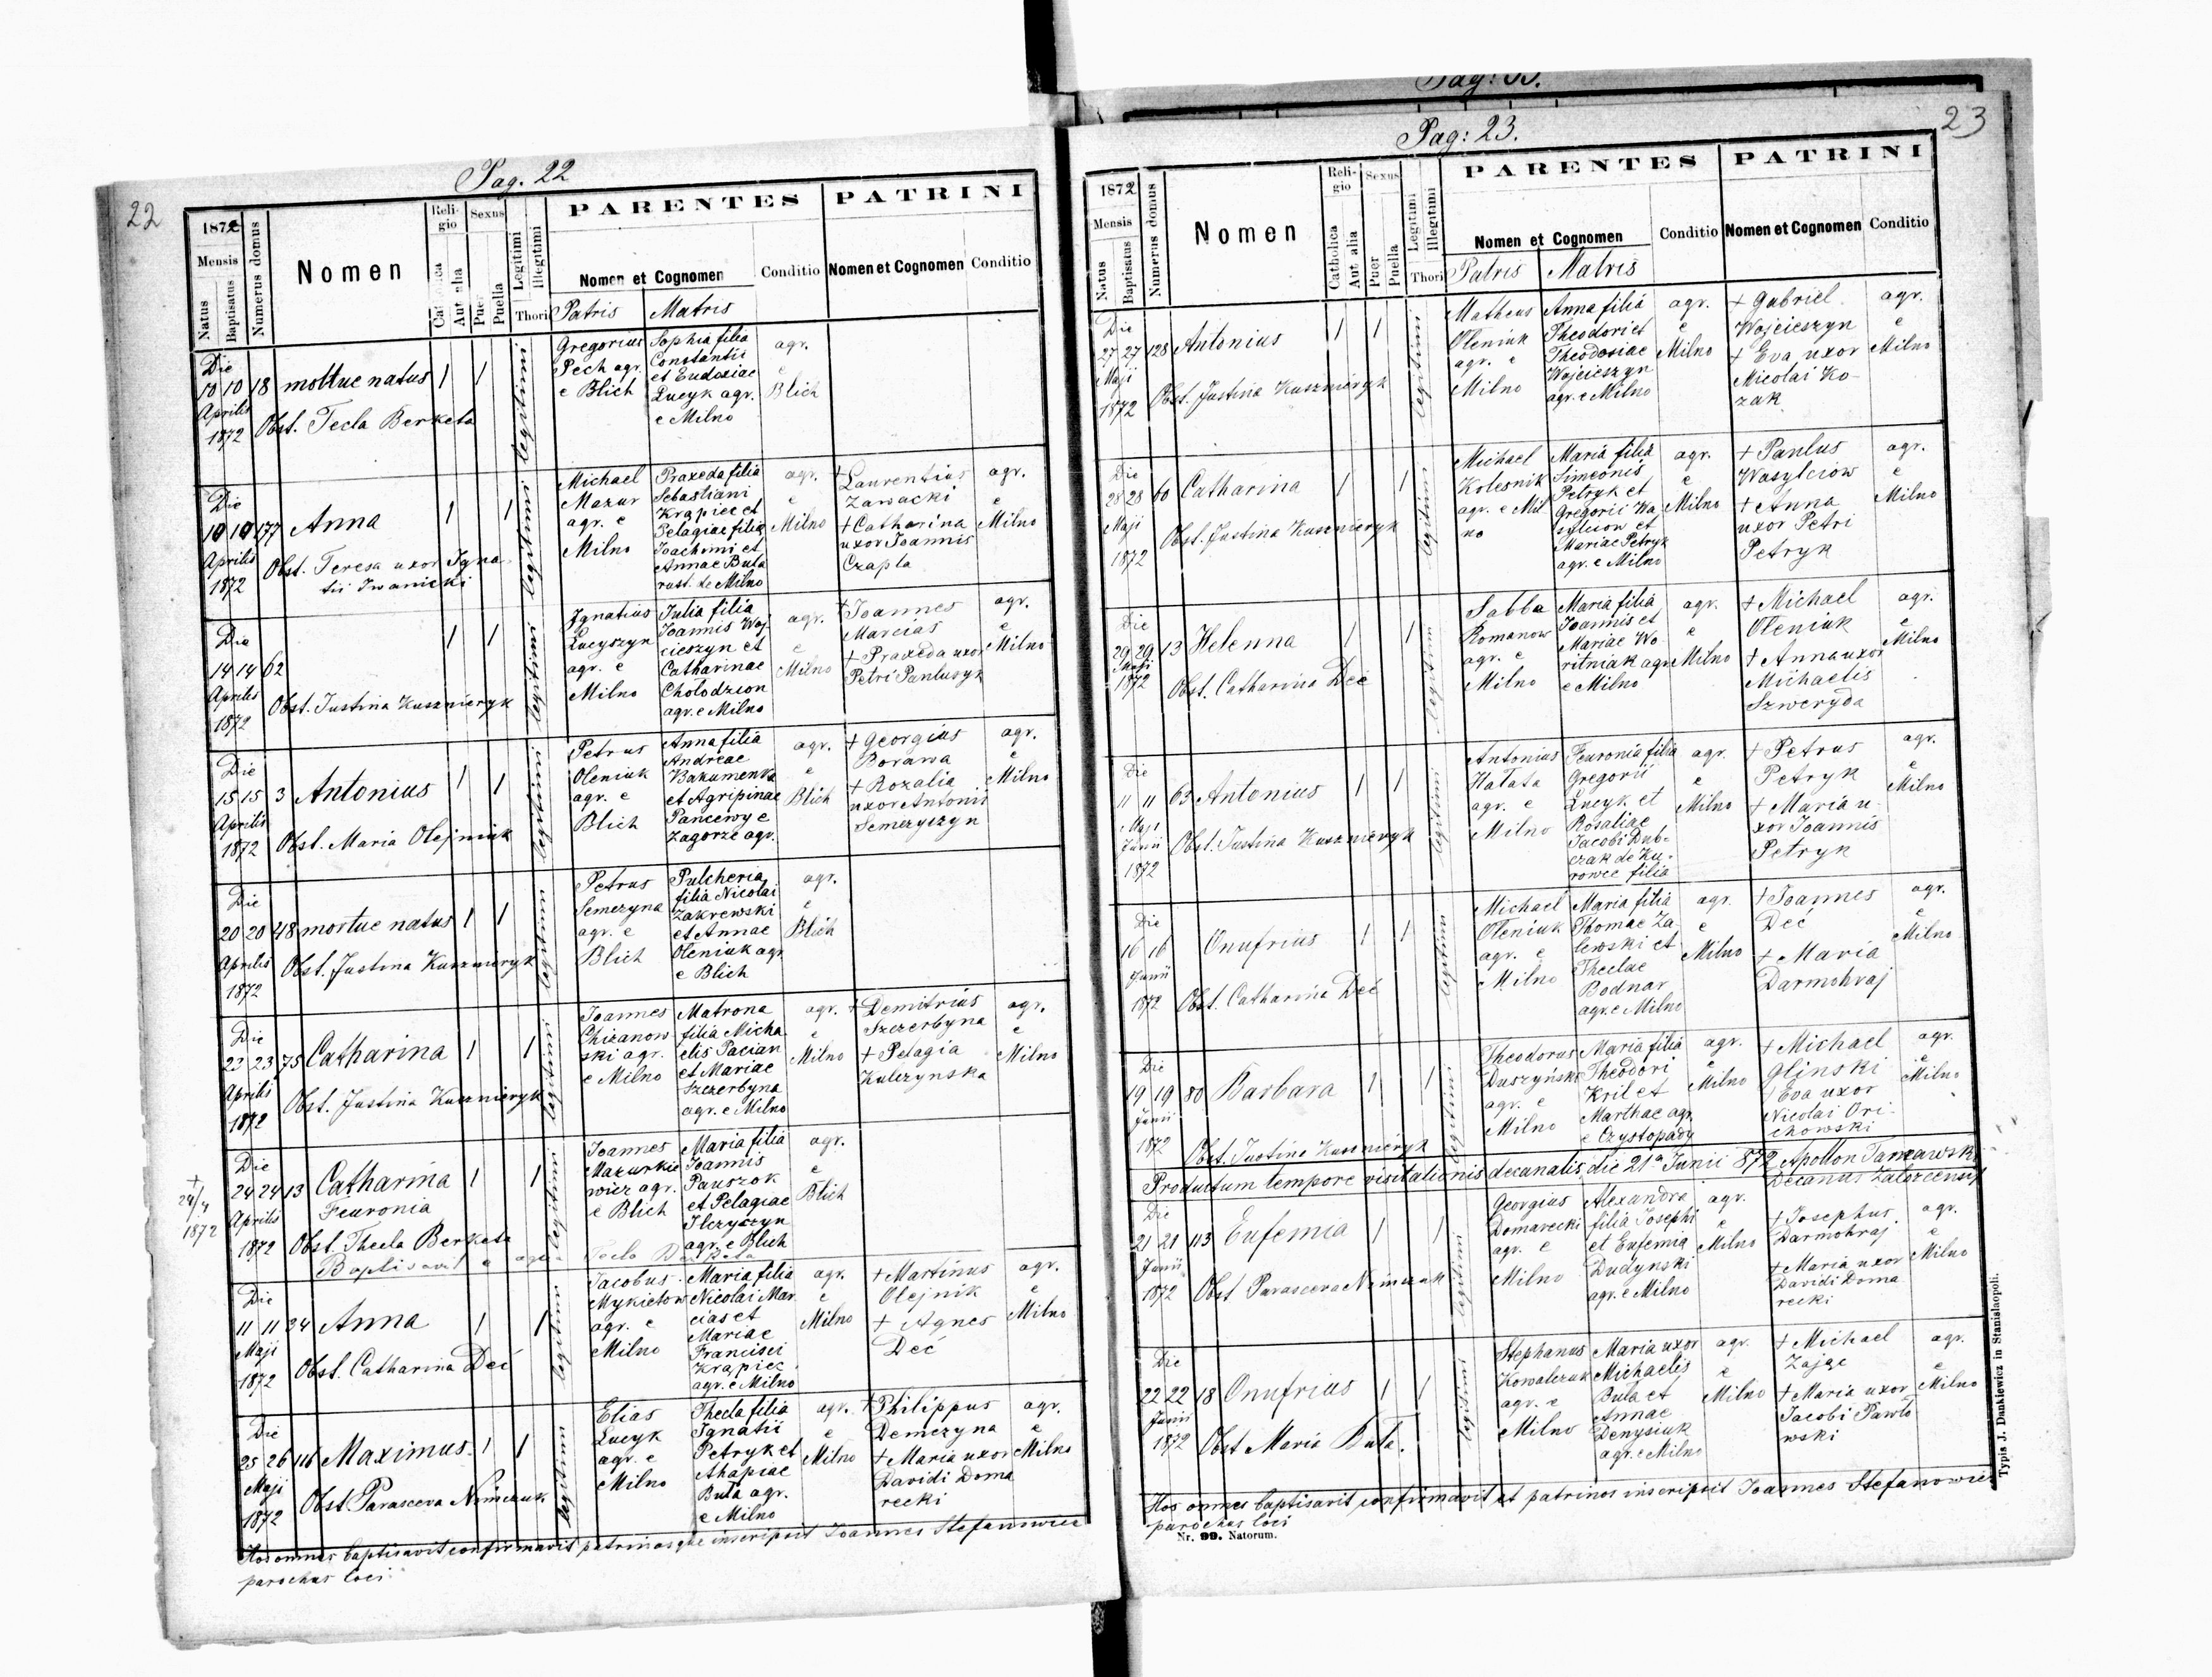 Pag. 22
22
1872
Mensis
Natus
Baptisatus
Numerus domus
Nomen
Religio
Aut alia
Sexus
Puer
Puella
Legitimi
Illegitimi
Thori
PARENTES
Nomen et Cognomen
Patris
Matris
Conditio
PATRINI
Nomen et Cognomen
Conditio
Die
10 10 18 mottue natus 1 1
Aprilis
1872
Obst. Tecla Berketa
legitimi
Gregorius
Pech agr.
e Blich
Sophia filia
Constantii
et Eudoxiae
Lucyk agr.
e Milno
agr.
e
Blich
Die
10 10 177 Anna 1 1
Aprilis
1872
Obst. Teresa uxor Igna-
tii Iwanicki
legitimi
Michael
Mazur
agr. e
Milno
Praxeda filia
Sebastiani
Krąpiec et
Pelagiae filia
Joachimi et
Annae Buła
rust. de Milno
agr.
e
Milno
+ Laurentius
Zawacki
+ Catharina
uxor Joannis
Czapla
agr.
e
Milno
Die
14 14 62 1 1
Aprilis
1872
Obst. Justina Kusznieryk
legitimi
Ignatius
Lucyszyn
agr. e
Milno
Julia filia
Joannis Woj
cieszyn et
Catharinae
Chołodzion
agr. e Milno
agr.
e
Milno
+ Joannes
Marcias
+ Praxeda uxor
Petri Pantusyk
agr.
e
Milno
Die
15 15 3 Antonius 1 1
Aprilis
1872
Obst. Maria Olejniuk
legitimi
Petrus
Oleniuk
agr. e
Blich
Anna filia
Andreae
Bakumenka
et Agripinae
Pancewy e
Zagorze agr.
agr.
e
Blich
+ Georgius
Borawa
+ Rozalia
uxor Antonii
Semczyszyn
agr.
e
Milno
Die
20 20 48 mortue natus 1 1
Aprilis
1872
Obst. Justina Kusznieryk
legitimi
Petrus
Semczyna
agr. e
Blich
Pulcheria
filia Nicolai
Zakrewski
et Annae
Oleniuk agr
e Blich
agr.
e
Blich
Die
23 23 75 Catharina 1 1
Aprilis
1872
Obst. Justina Kusznieryk
legitimi
Joannes
Chizanow
ski agr.
e Milno
Matrona
filia Micha
elis Pacian
et Mariae
Szczerbyna
agr. e Milno
agr.
e
Milno
+ Demitrius
Szczerbyna
+ Pelagia
Kulczynska
agr.
e
Milno
+
24/4
1872
Die
24 24 13 Catharina 1 1
Feuronia
Aprilis
1872
Obst. Thecla Berketa
Baptisavit e aqua Tecla Berketa
legitimi
Joannes
Mazurkie
wicz agr.
e Blich
Maria filia
Joannis
Pauszok
et Pelagiae
Ilczyszyn
agr. e Blich
agr.
e
Blich
Die
11 11 24 Anna 1 1
Maji
1872
Obst. Catharina Deć
legitimi
Jacobus
Mykietow
agr. e
Milno
Maria filia
Nicolai Mar
cias et
Mariae
Francisci
Krąpiec
agr. e Milno
agr.
e
Milno
+ Martinus
Olejnik
+ Agnes
Deć
agr.
e
Milno
Die
25 26 116 Maximus 1 1
Maji
1872
Obst. Parasceva Nimczuk
legitimi
Elias
Lucyk
agr. e
Milno
Thecla filia
Ignatii
Petryk et
Ahapiae
Buła agr.
e Milno
agr.
e
Milno
+ Philippus
Demczyna
+ Maria uxor
Davidi Doma
recki
agr.
e
Milno
Hos omnes baptisavit confirmavit patrinosque inscripsit Joannes Stefanowicz
parochus loci
Pag: 33.
Pag: 23.
23
1872
Mensis
Natus
Baptisatus
Numerus domus
Nomen
Religio
Catholica
Aut alia
Sexus
Puer
Puella
Legitimi
Illegitimi
Thori
PARENTES
Nomen et Cognomen
Patris
Matris
Conditio
PATRINI
Nomen et Cognomen
Conditio
Die
27 27 128 Antonius 1 1
Maji
1872
Obst. Justina Kusznieryk
legitimi
Matheus
Oleniuk
agr. e
Milno
Anna filia
Theodori et
Theodosiae
Wojcieszyn
agr. e Milno
agr.
e
Milno
+ Gabriel
Wojcieszyn
+ Eva uxor
Nicolai Ko-
zak
agr.
e
Milno
Die
28 28 60 Catharina 1 1
Maji
1872
Obst. Justina Kusznieryk
legitimi
Michael
Kolesnik
agr. e Mil
no
Maria filia
Simeonis
Petryk et
Gregorii Wa
sylciow et
Mariae Petryk
agr. e Milno
agr.
e
Milno
+ Paulus
Wasylciow
+ Anna
uxor Petri
Petryk
agr.
e
Milno
Die
29 29 13 Helenna 1 1
Maji
1872
Obst. Catharina Deć
legitimi
Sabba
Romanow
agr. e
Milno
Maria filia
Joannis et
Mariae Wo
ritniak agr
e Milno
agr.
e
Milno
+ Michael
Oleniuk
+ Anna uxor
Michaelis
Szweryda
agr.
e
Milno
Die
11 11 63 Antonius 1 1
Maji
Junii
1872
Obst. Justina Kusznieryk
legitimi
Antonius
Hałata
agr. e
Milno
Feuronia filia
Gregorii
Lucyk et
Rosaliae
Jacobi Dub-
czak de Ku-
rowce filia
agr.
e
Milno
+ Petrus
Petryk
+ Maria u-
xor Joannis
Petryk
agr.
e
Milno
Die
16 16 Onufrius 1 1
Junii
1872
Obst. Catharina Deć
legitimi
Michael
Oleniuk
agr. e
Milno
Maria filia
Thomae Za-
lewski et
Theclae
Bodnar
agr. e Milno
agr.
e
Milno
+ Joannes
Deć
+ Maria
Darmohraj
agr.
e
Milno
Die
19 19 80 Barbara 1 1
Junii
1872
Obst. Justina Kusznieryk
legitimi
Theodorus
Duszyński
agr. e
Milno
Maria filia
Theodori
Kril et
Marthae agr
e Czystopady
agr.
e
Milno
+ Michael
Glinski
+ Eva uxor
Nicolai Ori-
chowski
agr.
e
Milno
Productum tempore visitationis decanalis die 21a Junii 872 Apollon Tanczawski
Decanus Załozcensis
Die
21 21 113 Eufemia 1 1
Junii
1872
Obst Parasceva Nimczuk
legitimi
Georgius
Domarecki
agr. e
Milno
Alexandra
filia Josephi
et Eufemia
Dudynski
agr. e Milno
agr.
e
Milno
+ Josephus
Darmohraj
+ Maria uxor
Davidi Doma
recki
agr.
e
Milno
Die
22 22 18 Onufrius 1 1
Junii
1872
Obst Maria Buła.
legitimi
Stephanus
Kowalczuk
agr. e
Milno
Maria uxor
Michaelis
Buła et
Annae
Denysiuk
agr. e Milno
agr.
e
Milno
+ Michael
Zając
+ Maria uxor
Jacobi Pawło
wski
agr.
e
Milno
Hos omnes baptisavit confirmavit et patrinos inscripsit Joannes Stefanowicz
parochus loci
Nr. 99. Natorum.
Typis J. Dankiewicz in Stanislaopoli.